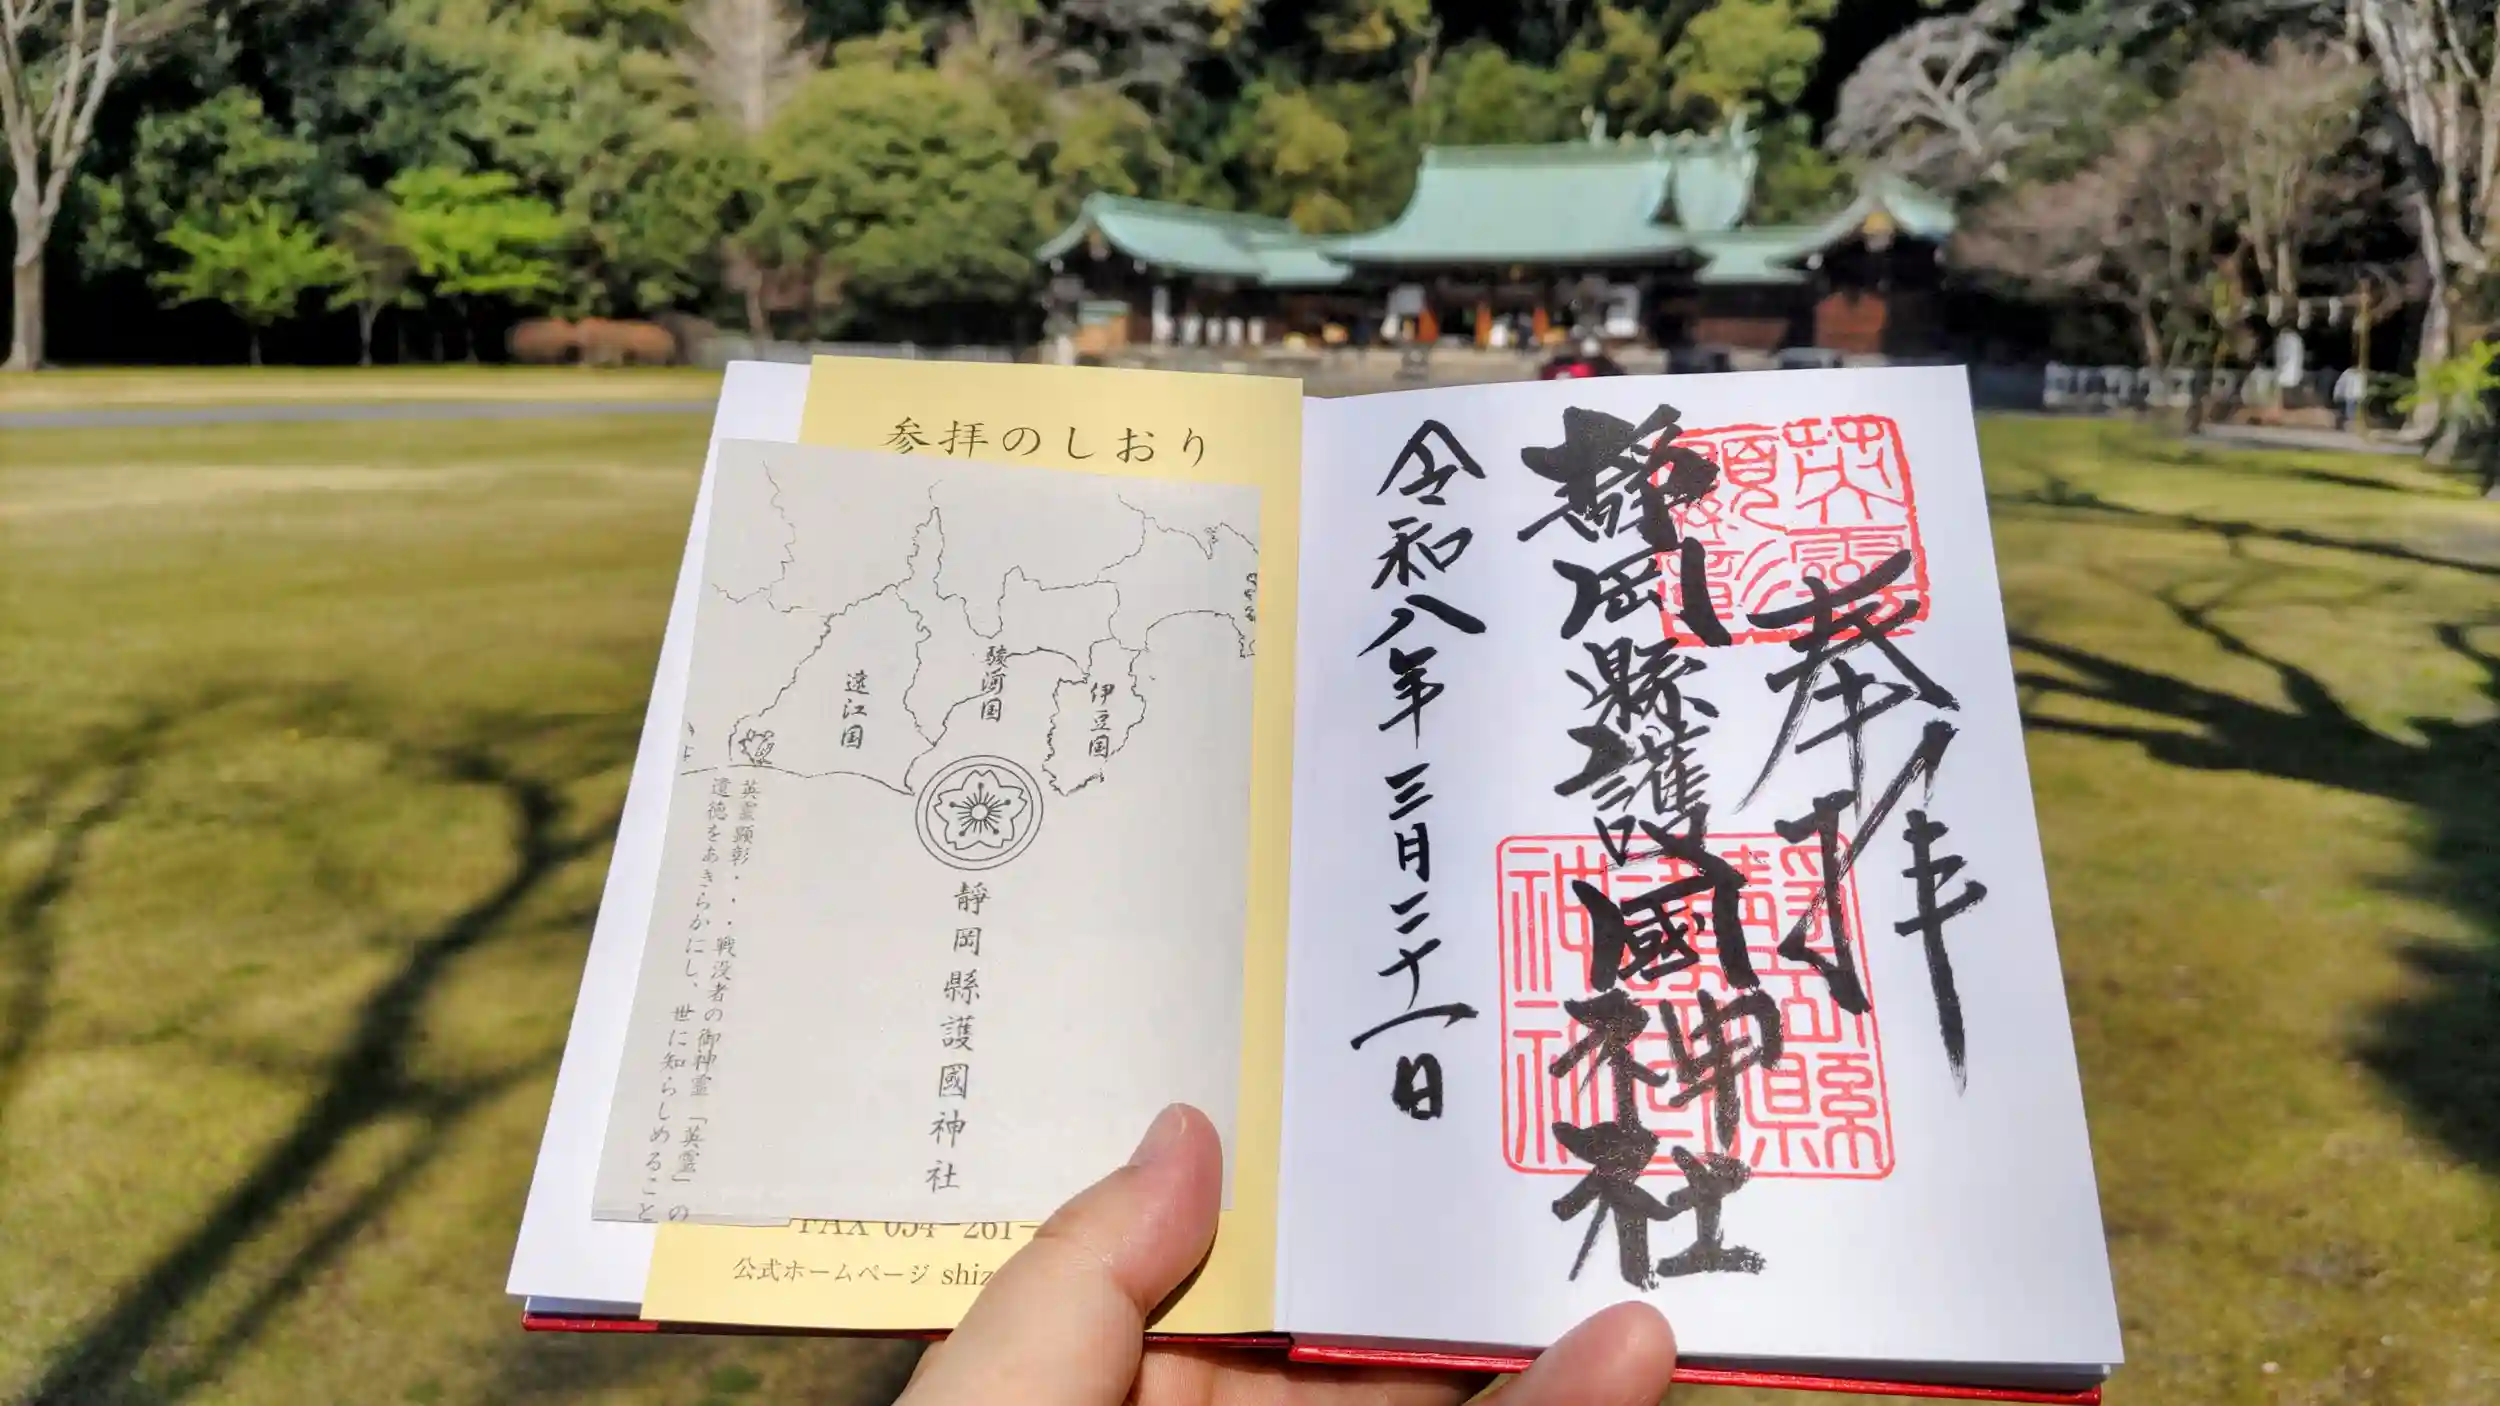 参拝のしおり
遠江国
駿河国
伊豆国
英霊顕彰・・・戦没者の御神霊「英霊」の
遺徳をあきらかにし、世に知らしめること
靜岡縣護國神社
FAX 054-261-
公式ホームページ shiz
奉拝
靜岡縣護國神社
令和八年三月二十一日
英霊
顕彰
靜岡縣
護國
神社